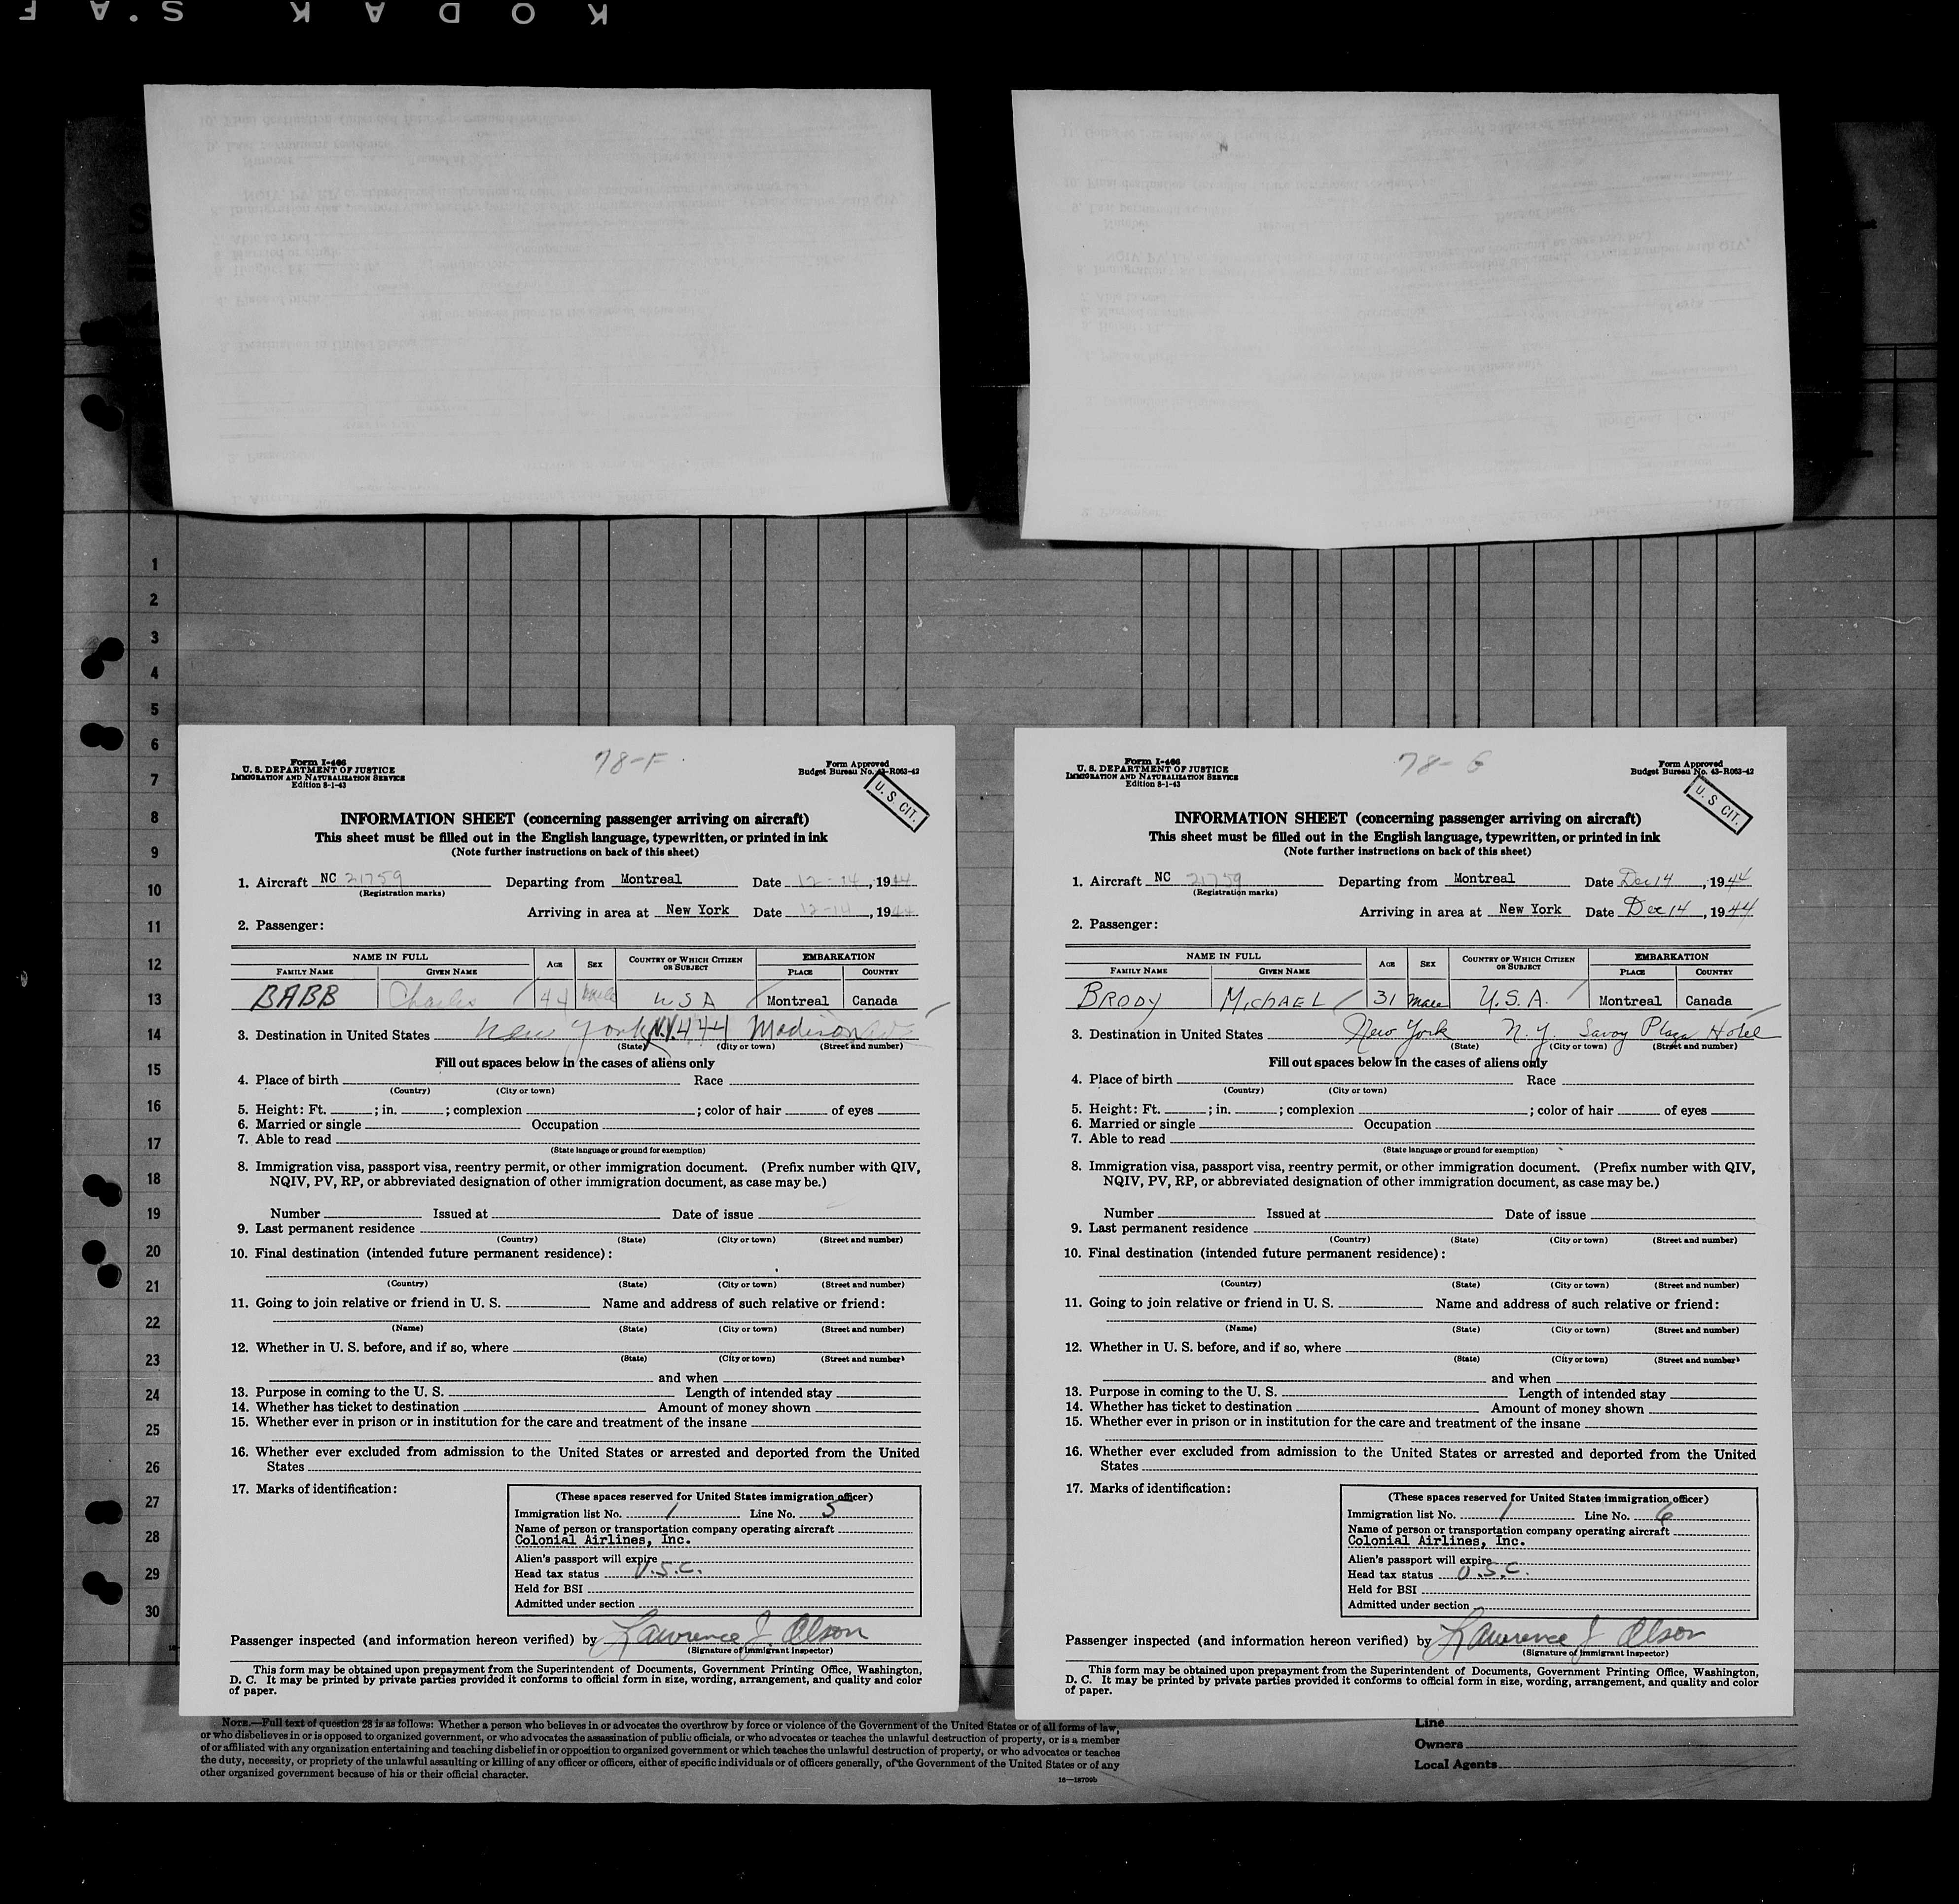 KODAK S.A F
1
2
3
4
5
6
7
8
9
10
11
12
13
14
15
16
17
18
19
20
21
22
23
24
25
26
27
28
29
30
78-F
Form I-466
U. S. DEPARTMENT OF JUSTICE
IMMIGRATION AND NATURALIZATION SERVICE
Edition 8-1-43
Form Approved
Budget Bureau No. 43-R063-42
U. S. CIT.
INFORMATION SHEET (concerning passenger arriving on aircraft)
This sheet must be filled out in the English language, typewritten, or printed in ink
(Note further instructions on back of this sheet)
1. Aircraft NC 21759 Departing from Montreal Date 12-14, 1944
(Registration marks)
Arriving in area at New York Date 12-14, 1944
2. Passenger:
NAME IN FULL AGE SEX COUNTRY OF WHICH CITIZEN OR SUBJECT EMBARKATION
FAMILY NAME GIVEN NAME PLACE COUNTRY
BABB Charles 44 Male USA Montreal Canada
3. Destination in United States New York N.Y. 444 Madison Ave
(State) (City or town) (Street and number)
Fill out spaces below in the cases of aliens only
4. Place of birth Race
(Country) (City or town)
5. Height: Ft. ; in. ; complexion ; color of hair of eyes
6. Married or single Occupation
7. Able to read
(State language or ground for exemption)
8. Immigration visa, passport visa, reentry permit, or other immigration document. (Prefix number with QIV,
NQIV, PV, RP, or abbreviated designation of other immigration document, as case may be.)
Number Issued at Date of issue
9. Last permanent residence
(Country) (State) (City or town) (Street and number)
10. Final destination (intended future permanent residence):
(Country) (State) (City or town) (Street and number)
11. Going to join relative or friend in U. S. Name and address of such relative or friend:
(Name) (State) (City or town) (Street and number)
12. Whether in U. S. before, and if so, where
(State) (City or town) (Street and number)
and when
13. Purpose in coming to the U. S. Length of intended stay
14. Whether has ticket to destination Amount of money shown
15. Whether ever in prison or in institution for the care and treatment of the insane
16. Whether ever excluded from admission to the United States or arrested and deported from the United
States
17. Marks of identification:
(These spaces reserved for United States immigration officer)
Immigration list No. 1 Line No. 5
Name of person or transportation company operating aircraft
Colonial Airlines, Inc.
Alien's passport will expire
Head tax status U.S.C.
Held for BSI
Admitted under section
Passenger inspected (and information hereon verified) by Lawrence J. Olson
(Signature of immigrant inspector)
This form may be obtained upon prepayment from the Superintendent of Documents, Government Printing Office, Washington,
D. C. It may be printed by private parties provided it conforms to official form in size, wording, arrangement, and quality and color
of paper.
78-G
Form I-466
U. S. DEPARTMENT OF JUSTICE
IMMIGRATION AND NATURALIZATION SERVICE
Edition 8-1-43
Form Approved
Budget Bureau No. 43-R063-42
U. S. CIT.
INFORMATION SHEET (concerning passenger arriving on aircraft)
This sheet must be filled out in the English language, typewritten, or printed in ink
(Note further instructions on back of this sheet)
1. Aircraft NC 21759 Departing from Montreal Date Dec 14, 1944
(Registration marks)
Arriving in area at New York Date Dec 14, 1944
2. Passenger:
NAME IN FULL AGE SEX COUNTRY OF WHICH CITIZEN OR SUBJECT EMBARKATION
FAMILY NAME GIVEN NAME PLACE COUNTRY
BRODY MICHAEL 31 Male U.S.A. Montreal Canada
3. Destination in United States New York N.Y. Savoy Plaza Hotel
(State) (City or town) (Street and number)
Fill out spaces below in the cases of aliens only
4. Place of birth Race
(Country) (City or town)
5. Height: Ft. ; in. ; complexion ; color of hair of eyes
6. Married or single Occupation
7. Able to read
(State language or ground for exemption)
8. Immigration visa, passport visa, reentry permit, or other immigration document. (Prefix number with QIV,
NQIV, PV, RP, or abbreviated designation of other immigration document, as case may be.)
Number Issued at Date of issue
9. Last permanent residence
(Country) (State) (City or town) (Street and number)
10. Final destination (intended future permanent residence):
(Country) (State) (City or town) (Street and number)
11. Going to join relative or friend in U. S. Name and address of such relative or friend:
(Name) (State) (City or town) (Street and number)
12. Whether in U. S. before, and if so, where
(State) (City or town) (Street and number)
and when
13. Purpose in coming to the U. S. Length of intended stay
14. Whether has ticket to destination Amount of money shown
15. Whether ever in prison or in institution for the care and treatment of the insane
16. Whether ever excluded from admission to the United States or arrested and deported from the United
States
17. Marks of identification:
(These spaces reserved for United States immigration officer)
Immigration list No. 1 Line No. 6
Name of person or transportation company operating aircraft
Colonial Airlines, Inc.
Alien's passport will expire
Head tax status U.S.C.
Held for BSI
Admitted under section
Passenger inspected (and information hereon verified) by Lawrence J Olson
(Signature of immigrant inspector)
This form may be obtained upon prepayment from the Superintendent of Documents, Government Printing Office, Washington,
D. C. It may be printed by private parties provided it conforms to official form in size, wording, arrangement, and quality and color
of paper.
NOTE.—Full text of question 28 is as follows: Whether a person who believes in or advocates the overthrow by force or violence of the Government of the United States or of all forms of law,
or who disbelieves in or is opposed to organized government, or who advocates the assassination of public officials, or who advocates or teaches the unlawful destruction of property, or is a member
of or affiliated with any organization entertaining and teaching disbelief in or opposition to organized government or which teaches the unlawful destruction of property, or who advocates or teaches
the duty, necessity, or propriety of the unlawful assaulting or killing of any officer or officers, either of specific individuals or of officers generally, of the Government of the United States or of any
other organized government because of his or their official character.
16—18709b
Line
Owners
Local Agents